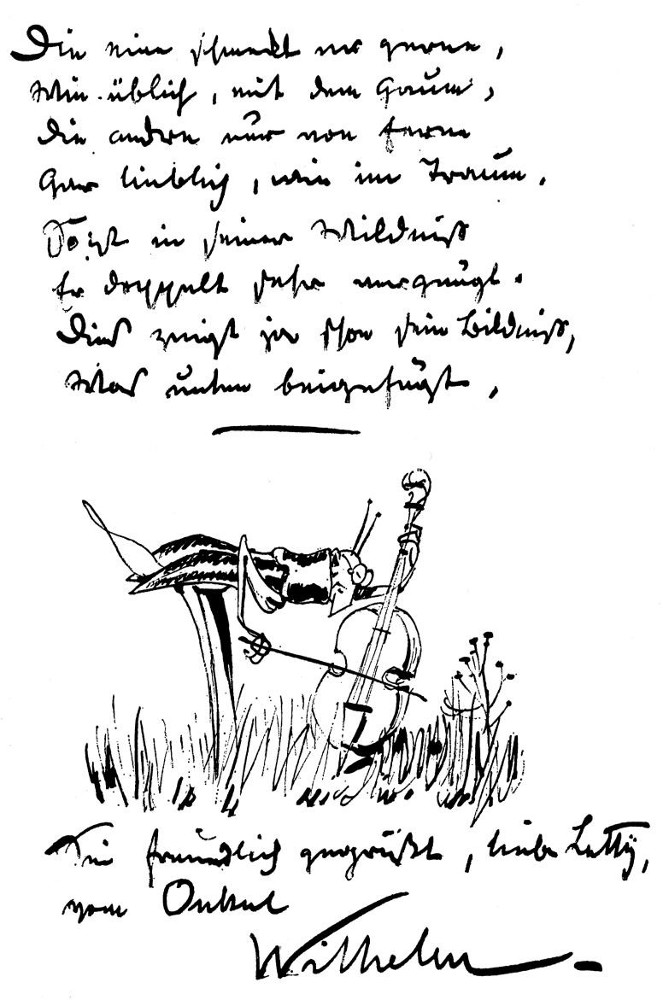 Die eine schmeckt er gerne,
Wie üblich, mit dem Gaum',
Die andre nur von ferne
Gar lieblich, wie im Traum.
So ist in seiner Wildniß
Er doppelt sehr vergnügt.
Dies zeigt ja schon sein Bildniß,
Was unten beigefügt.
Sei freundlich gegrüßt, liebe Letty,
vom Onkel
Wilhelm